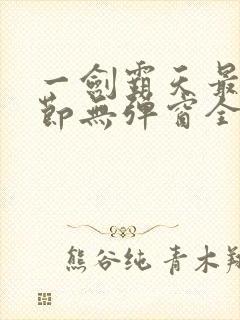 一劍霸天最
節無彈窗全
熊谷纯 青木翔